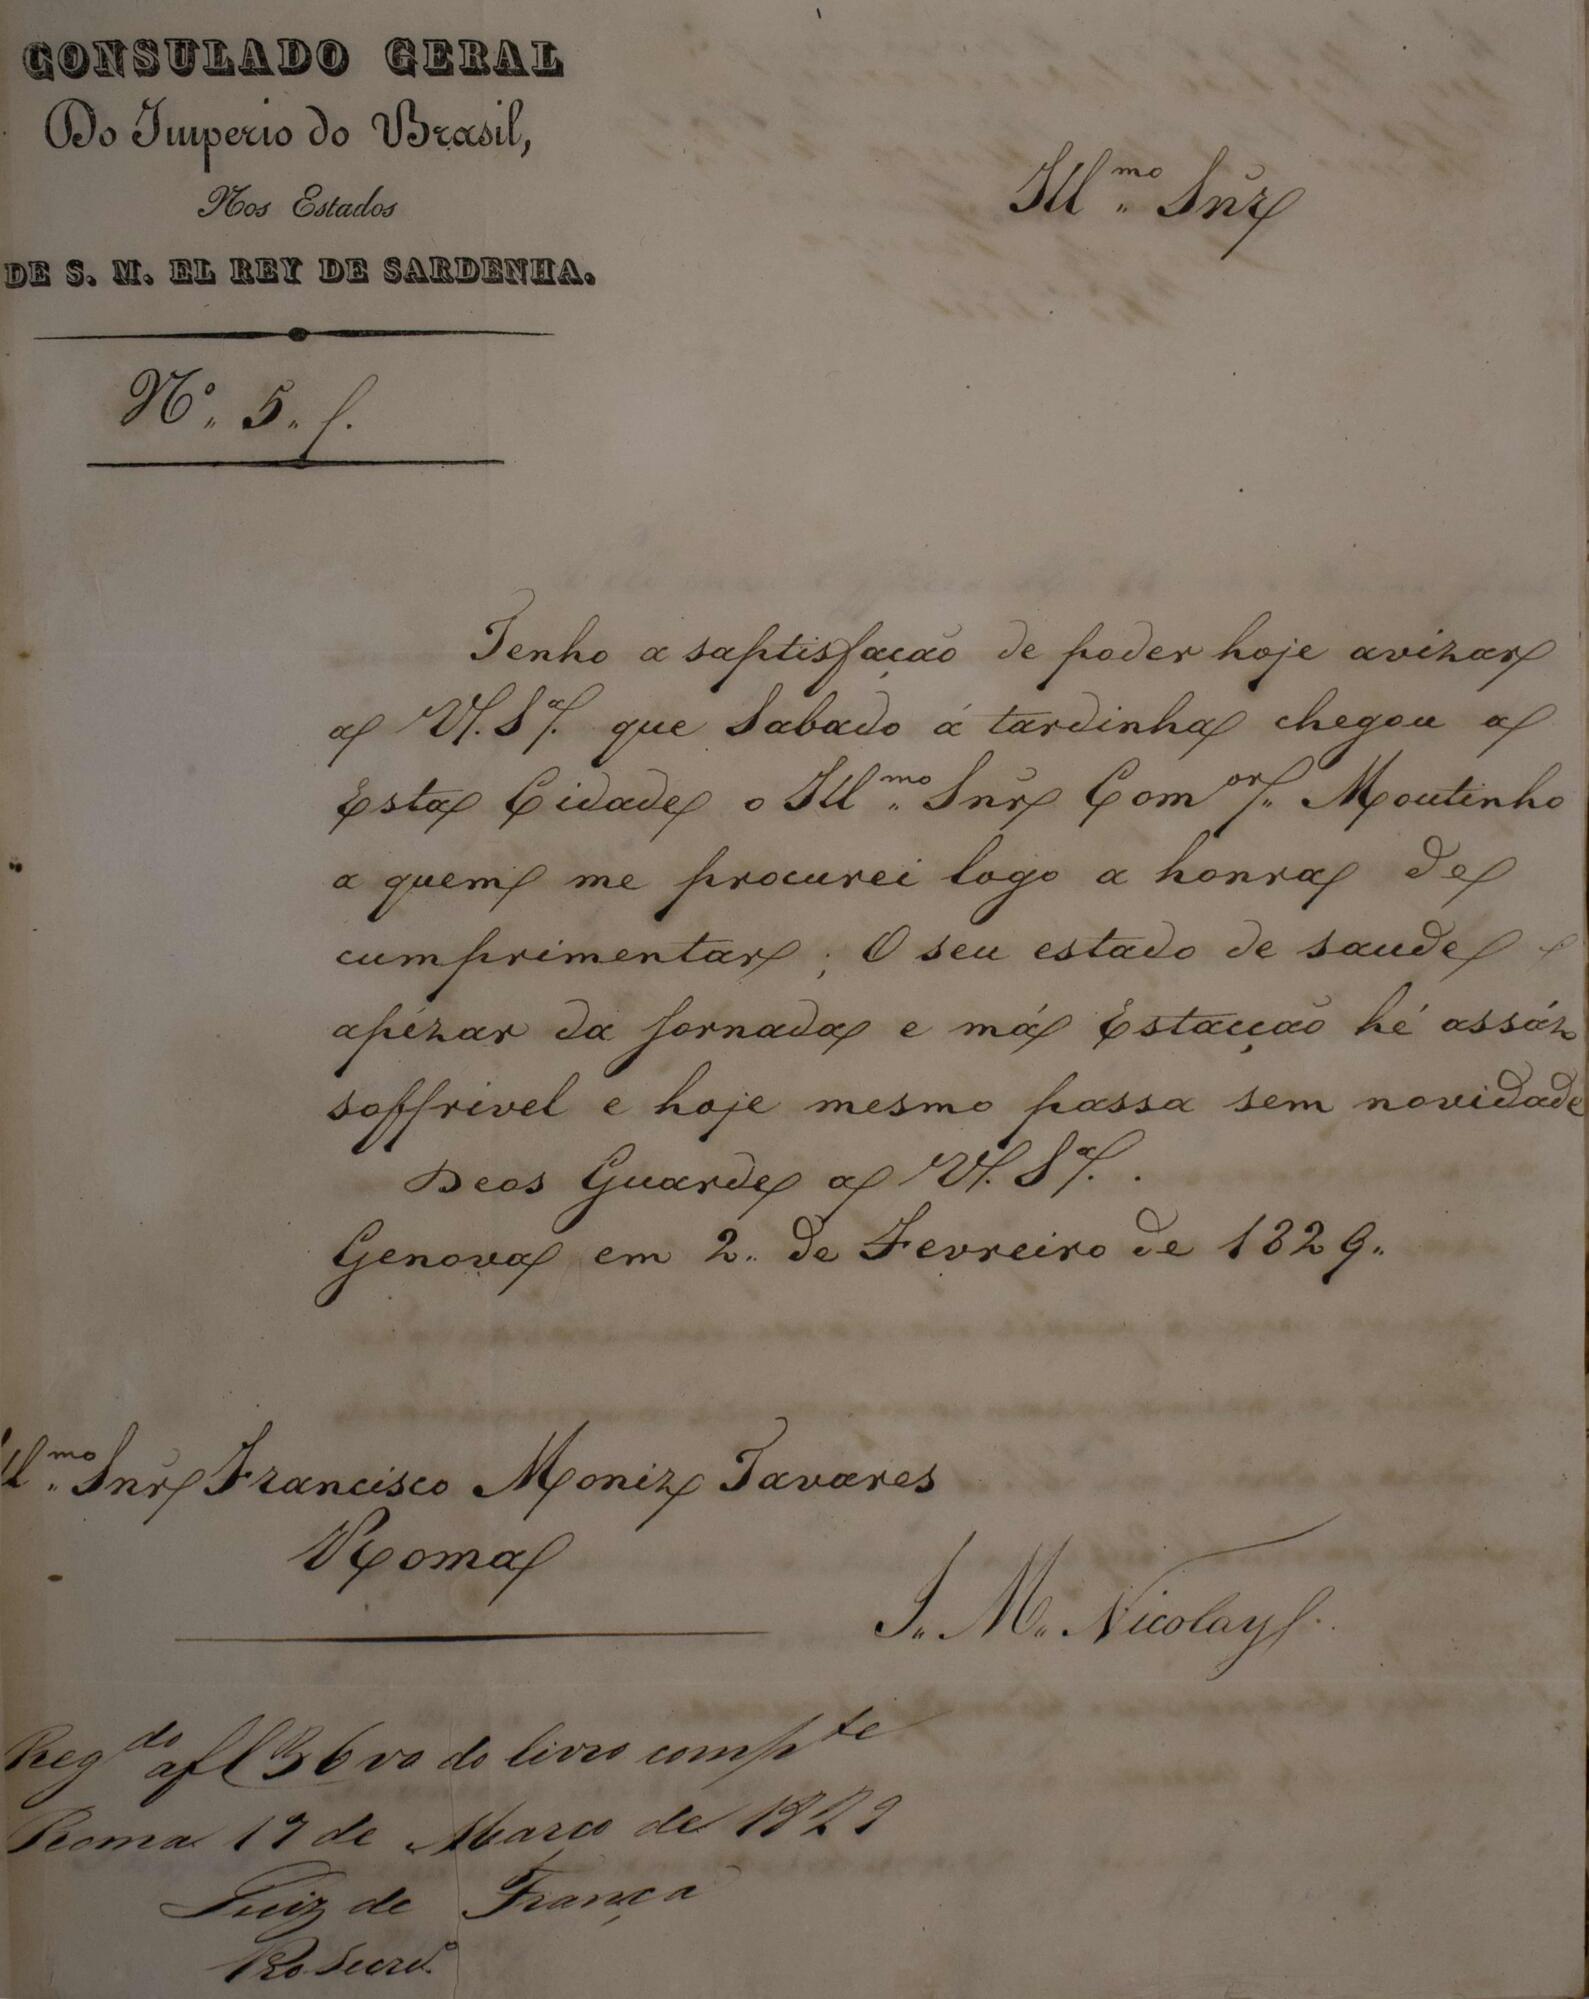 CONSULADO GERAL
Do Imperio do Brasil,
Nos Estados
DE S. M. EL REY DE SARDENHA.
Nº. 5.
Illmo Snr
Tenho a saptisfação de poder hoje avizar
a V. Sa. que Sabado á tardinha chegou a
Esta Cidade o Illmo Snr Comor. Moutinho
a quem me procurei logo a honra de
cumprimentar; O seu estado de saude
apézar da Jornada e má Estacção hé assáz
soffrivel e hoje mesmo passa sem novidade
Deos Guarde a V. Sa.
Genova em 2. de Fevreiro de 1829.
Illmo Snr Francisco Moniz Tavares
Roma
J. M. Nicolay
Regdo a fl 36 vo do livro compte
Roma 17 de Março de 1829
Luiz de França